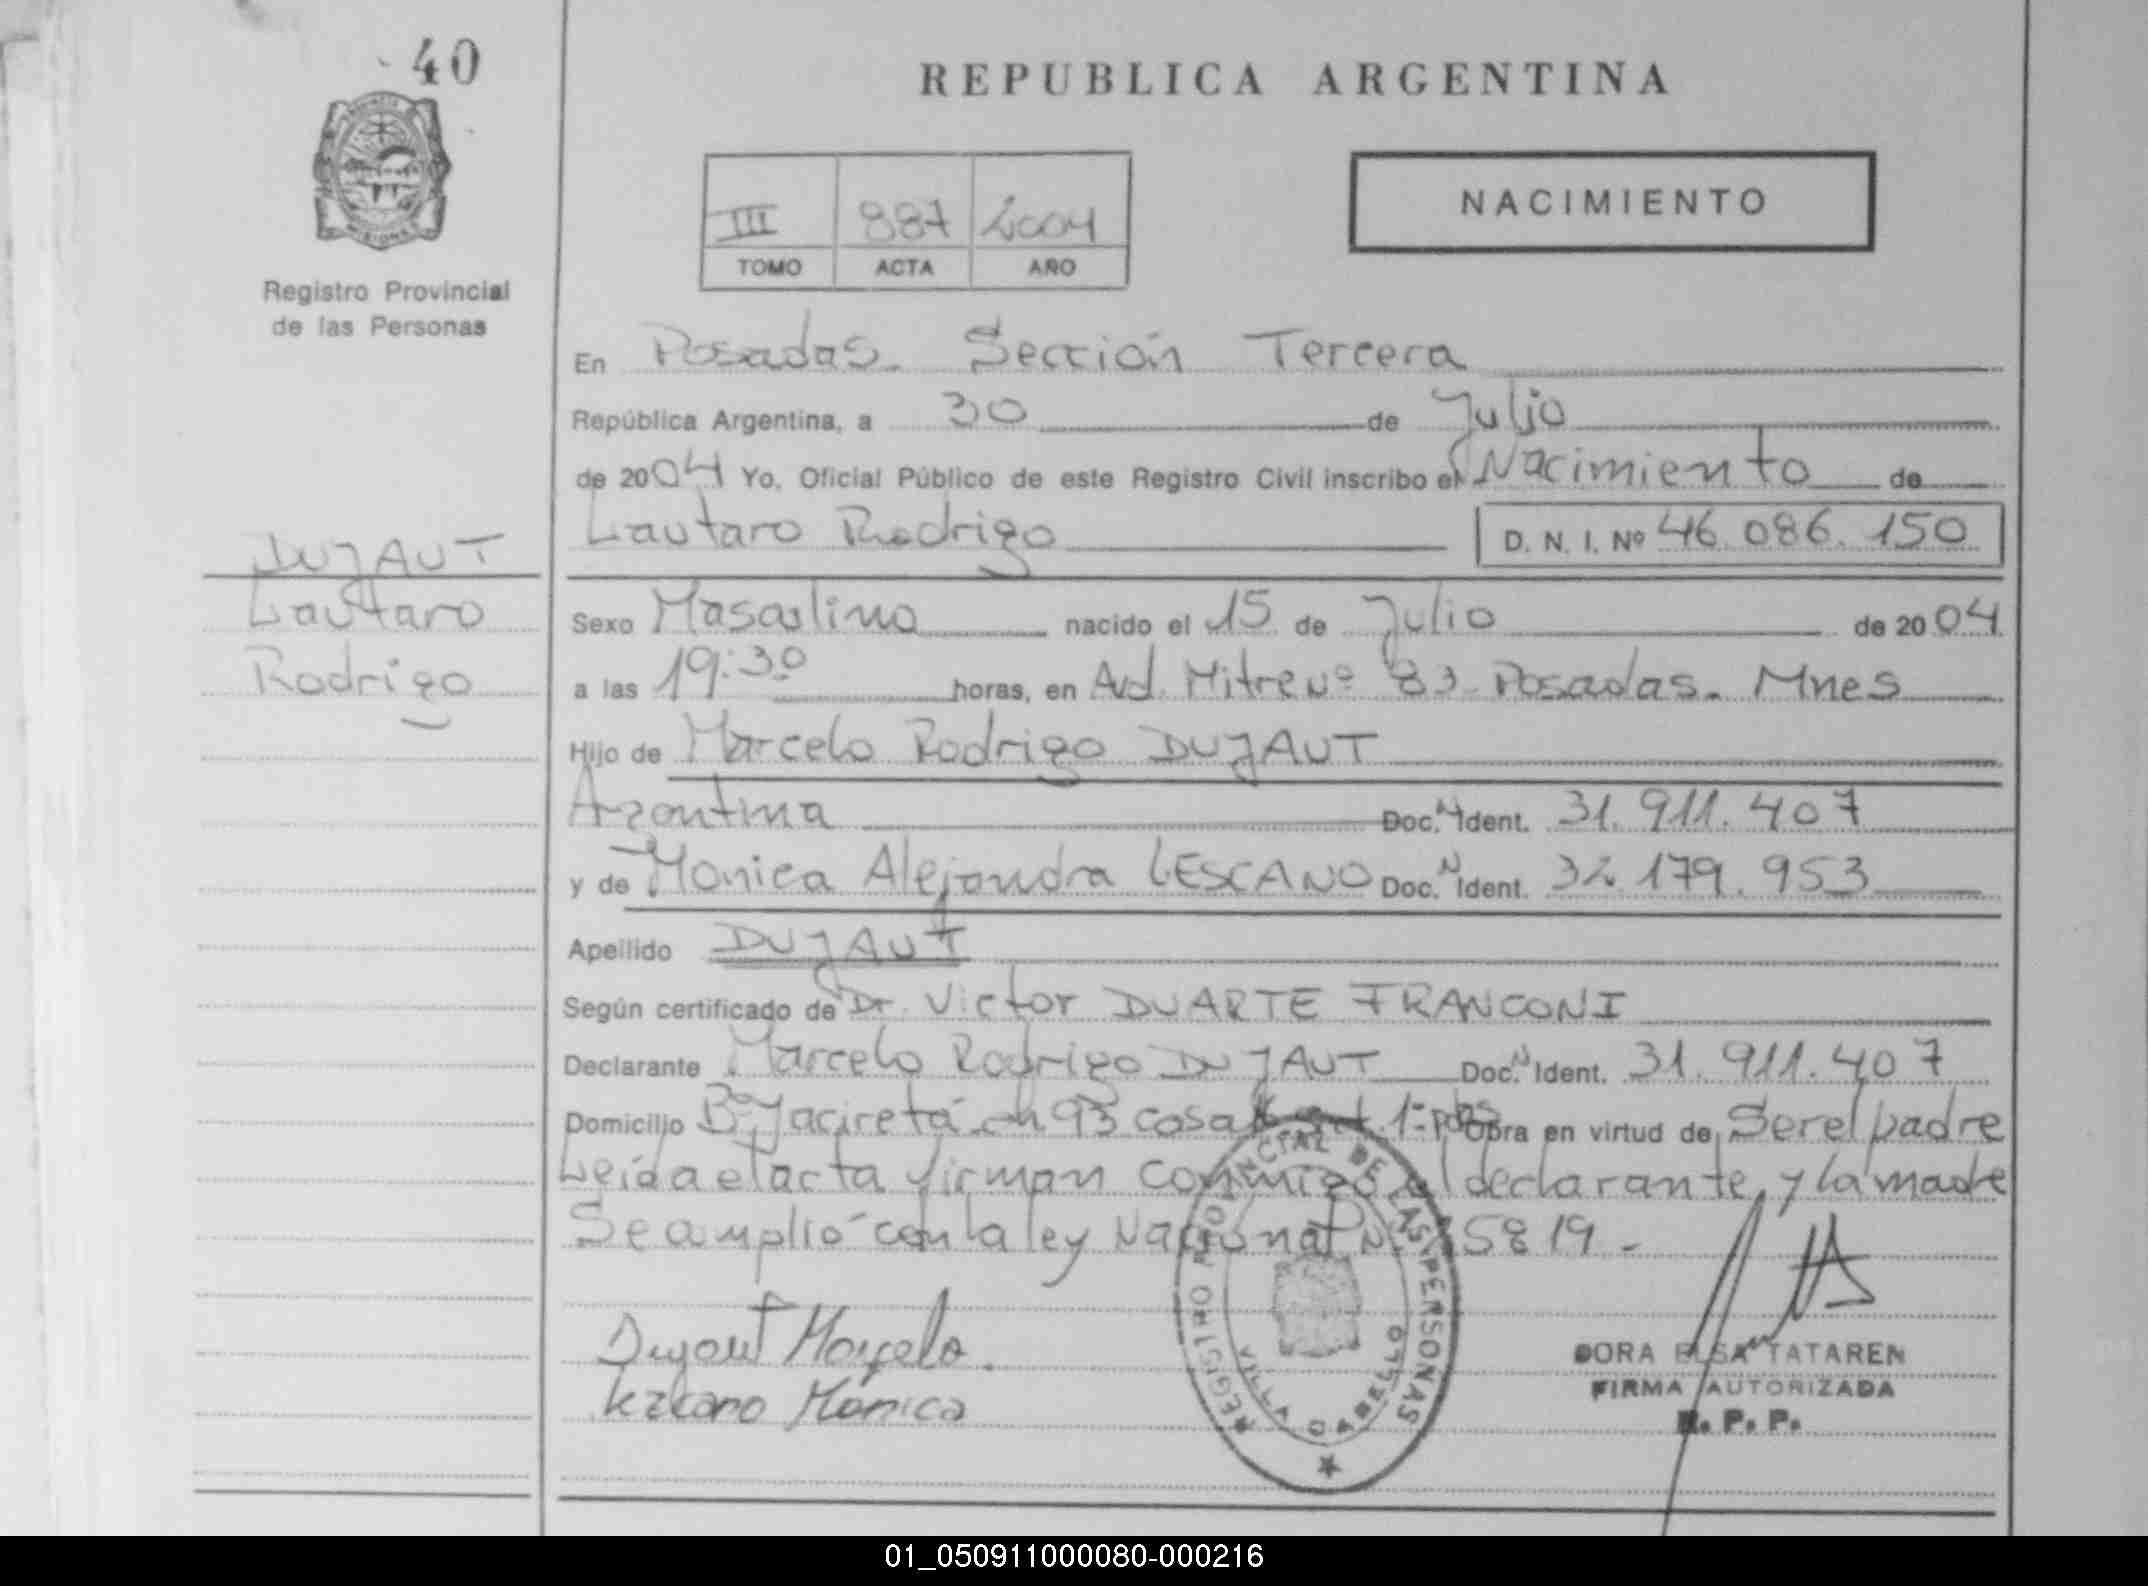 40
REPUBLICA ARGENTINA
III 887 2004
TOMO ACTA AÑO
NACIMIENTO
MISIONES
Registro Provincial
de las Personas
En Posadas. Sección Tercera
República Argentina, a 30 de Julio
de 2004 Yo, Oficial Público de este Registro Civil inscribo el Nacimiento de
Lautaro Rodrigo D. N. I. Nº 46.086.150
DUJAUT
Lautaro
Rodrigo
Sexo Masculino nacido el 15 de Julio de 2004
a las 19:30 horas, en Avd. Mitre Nº 83 Posadas. Mnes
Hijo de Marcelo Rodrigo DUJAUT
Argentina Doc. N Ident. 31.911.407
y de Monica Alejandra LESCANO Doc. N Ident. 32.179.953
Apellido DUJAUT
Según certificado de Dr. Victor DUARTE FRANCONI
Declarante Marcelo Rodrigo DUJAUT Doc. N Ident. 31.911.407
Domicilio Bº Yaciretá ch 93 casa Obra en virtud de Ser el padre
Leída el acta firman conmigo el declarante, y la madre
Se amplió con la ley Nacional Nº 25819 -
Dujaut Marcelo.
Lezcano Mónica
REGISTRO PROVINCIAL DE LAS PERSONAS
VILLA CABELLO
DORA ELSA TATAREN
FIRMA AUTORIZADA
R. P. P.
01_050911000080-000216